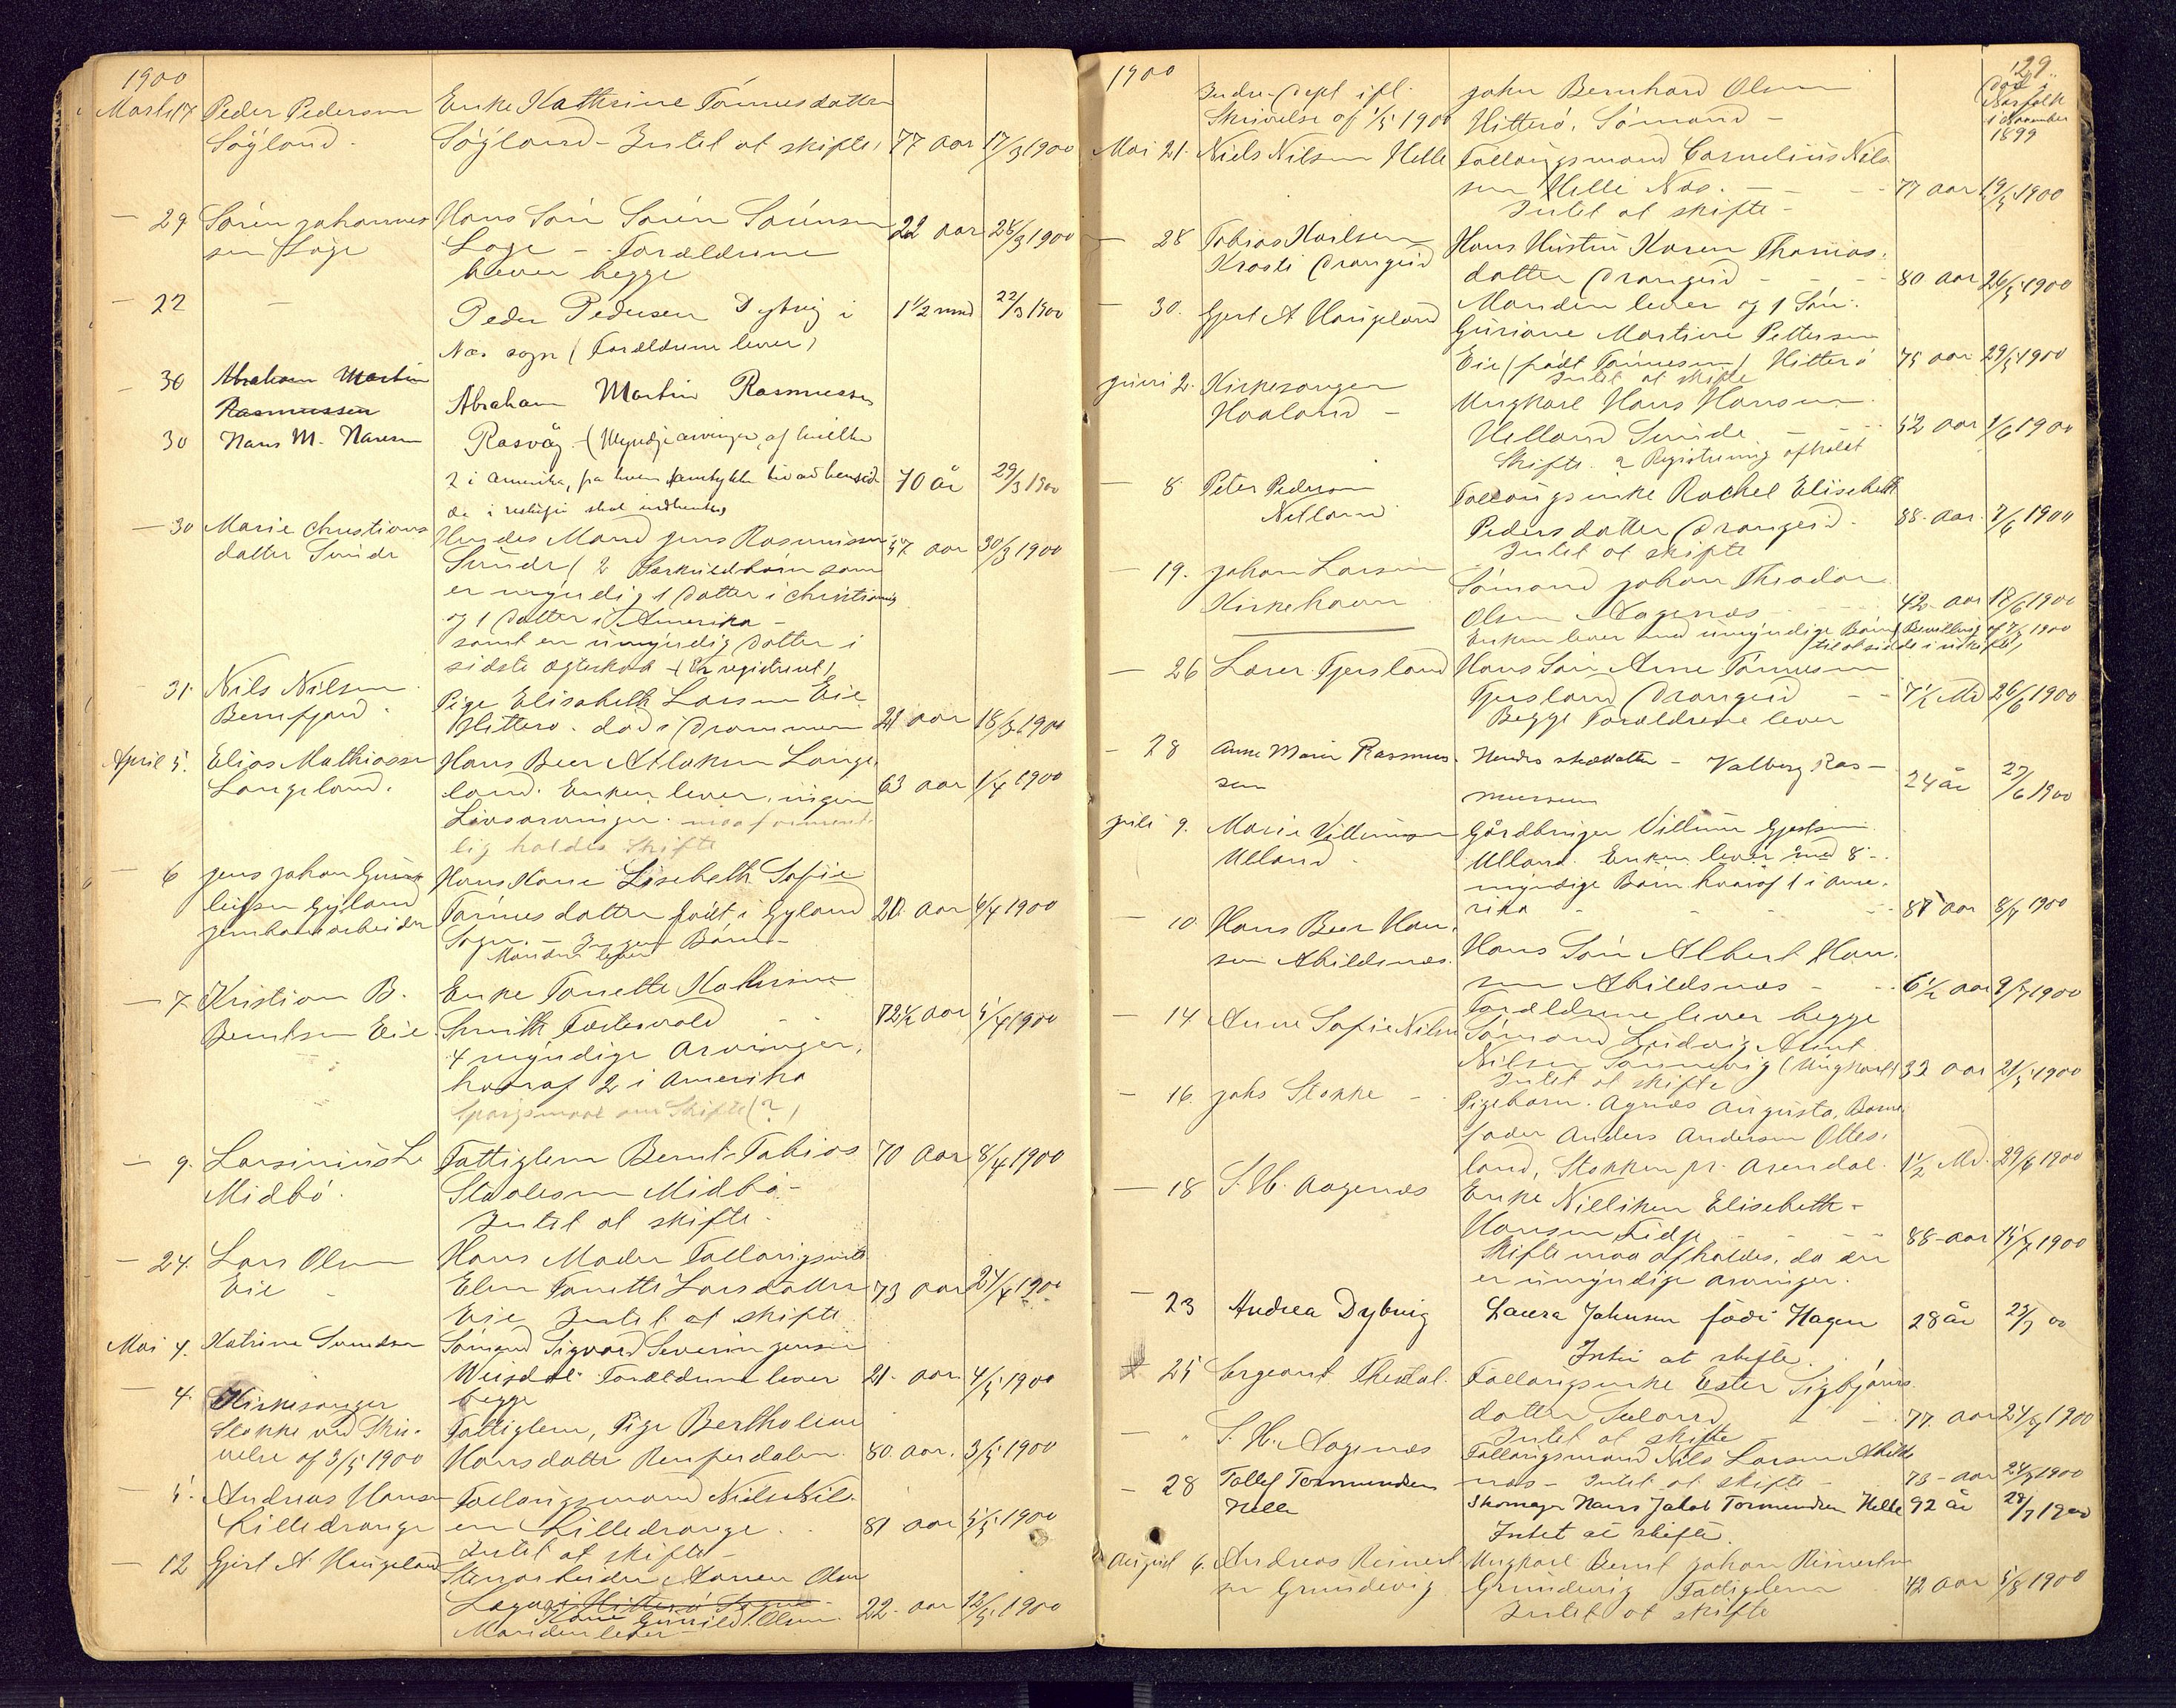 1900
Marts 17 Peder Pedersen Enke Kathrine Tønnesdatter
Søyland. Søyland - Intet at skifte, 77 aar 17/3 1900
- 29 Søren Johannes Hans Søn Søren Sørensen
sen Løge Løge - Forældrene 22 aar 28/3 1900
lever begge
- 22 - Peder Pedersen Dybvig i 1 1/2 mnd 22/3 1900
Næs sogn (Forældrene lever)
- 30 Abraham Martin
Rasmussen Abraham Martin Rasmussen
30 Hans M. Hansen Rasvåg - (Myndige arvinger, af hvilke
2 i Amerika, fra hvem samtykke 70 år 29/3 1900
de i skal indhentes
- 30 Marie Christians Hendes Mand Jens Rasmussen 57 aar 30/3 1900
datter Sunde Sunde (2 Særkuldbørn som
er myndig 1 Datter i Christiania
og 1 Datter i Amerika -
samt en umyndig Datter i
sidste ægteskab - (Er registreret)
- 31. Nils Nilsen Pige Elisabeth Larsen Eie
Berrefjord. Hitterø. død i Drammen 21 aar 18/3 1900
April 5. Elias Mathiassen Hans Broer Atlaksen Lange
Langeland. land. Enken lever, ingen 63 aar 1/4 1900
Livsarvinger. maa forment-
lig holdes Skifte
- 6 Jens Johan Gunn Hans Kone Lisebeth Sofie
leifsen Gyland Tønnesdatter født i Gyland 20 aar 6/4 1900
jernbanearbeider Sogn. - Ingen Børn -
Manden lever
- 7 Kristian B. Enke Tonette Kathrine
Berntsen Eie. Smith Festervold - - 72 1/2 aar 5/4 1900
4 myndige Arvinger,
hvoraf 2 i Amerika
Spørgsmaal om Skifte (?)
- 9. Larsinius L. Fattiglem Bernt Tobias 70 aar 8/4 1900
Midbø. Staalesen Midbø -
Intet at skifte.
- 24. Lars Olsen Hans Moder Føllaugsenke
Eie - Elen Tonette Larsdatter 73 aar 24/4 1900
Eie Intet at skifte
Mai 4. Katrine Svendsen Sømand Sigvard Severin Jensen
Weisdal. Forældrene lever 21. aar. 4/5 1900
begge
- 4. Kirkesanger
Stokke ved Skri- Fattiglem, Pige Bertholine
velse af 3/5 1900 Hansdatter Renperdalen. 80. aar. 3/5 1900
- 5. Andreas Hansen Føllaugsmand Niels Nils-
Lilledrange en Lilledrange. - 81 aar 5/5 1900
Intet at skifte -
- 12 Gjert A Haugeland Stenarbeider Aanen Olsen
Løgan i Hitterø Sogn - 22. aar 12/5 1900
Kone Gunild Olsen.
Manden lever -
1900 129
Indre-Dept ifl. John Bernhard Olsen Død i
Skrivelse af 1/5 1900 Hitterø, Sømand - Norfolk
1 November
1899
Mai 21. Niels Nilsen Helle Føllaugsmand Cornelius Nils-
sen Helle Næs. - - - 77 aar 19/5 1900
Intet at skifte -
- 28 Tobias Karlsen Hans Hustru Karen Thomas-
Krosti Drangeid datter Drangeid - - 80 aar 26/5 1900
Manden lever og 1 Søn.
- 30. Gjert A Haugeland Guriane Martine Pettersen
Eie (født Tønnesen) Hitterø 75 aar 29/5 1900
Intet at skifte
Juni 2. Kirkesanger Ungkarl Hans Hansen
Haaland - Helland Sunde - - 52 aar 1/6 1900
Skifte. Registrering afholdt
- 8 Peter Pedersen Føllaugsenke Rachel Elisabeth
Netland Pedersdatter Drangeid. 88. aar. 7/6 1900
Intet at skifte
- 19. Johan Larsen Sømand Johan Theodor
Kirkehavn Olsen Aagenæs - 42. aar 18/6 1900
Enken lever med umyndige Børn, Bevilling af 7/7 1900
til at sidde i uskiftet
- 26 Lærer Fjersland Hans Søn Arne Tønnesen
Fjersland Drangeid - - 7 1/2 Md 26/6 1900
Begge Forældrene lever
- 28 Anne Marie Rasmus- Hendes steddatter - Valborg Ras-
sen mussen 24 år 27/6 1900
Juli 9. Marie Villumsen Gårdbruger Villum Gjertsen
Ulland. Ulland. Enken lever med 8 -
myndige Børn hvoraf 1 i Ame-
rika - - - 87 aar 8/7 1900
- 10. Hans Beer Han-
sen Abildsnæs. Hans Søn Albert Han-
sen Abildsnæs - - 6 1/2 aar 9/7 1900
Forældrene lever begge
- 14 Anne Sofie Nilsen Sømand Ludvig Arent
Nilsen Sannevig (Ungkarl) 32 aar 21/5 1900
Intet at skifte
- 16. Johs Stokke - Pigebarn. Agnes Augusta, Barne-
fader Anders Andersen Ottes-
land, Stokken pr. Arendal. 1 1/2 Md. 29/6 1900
- 18 S. H. Aagenæs Enke Nilliken Elisebeth -
Hansen Fidje - - - 88-aar 15/7 1900
Skifte maa afholdes, da der
er umyndige arvinger.
- 23 Andrea Dybvig Laura Johnsen født Hagen 28 år 23/7 00
Intet at skifte.
- 25 Sergeant Theodal. Føllaugsenke Ester Sigbjørns-
datter Sæland - - 77. aar 24/7 1900
Intet at skifte
- " S. H. Aagenæs Føllaugsmand Nils Larsen Abilds
næs - Intet at skifte - 73 - aar 24/7 1900
- 28 Tollef Tormundsen Skomager Hans Jakob Tormundsen Helle 92 år 28/7 1900
Helle Intet at skifte.
August 6. Andreas Reinert- Ungkarl Bernt Johan Reinertsen
sen Grundevig Grundevig Fattiglem 42 aar 5/8 1900
Intet at skifte